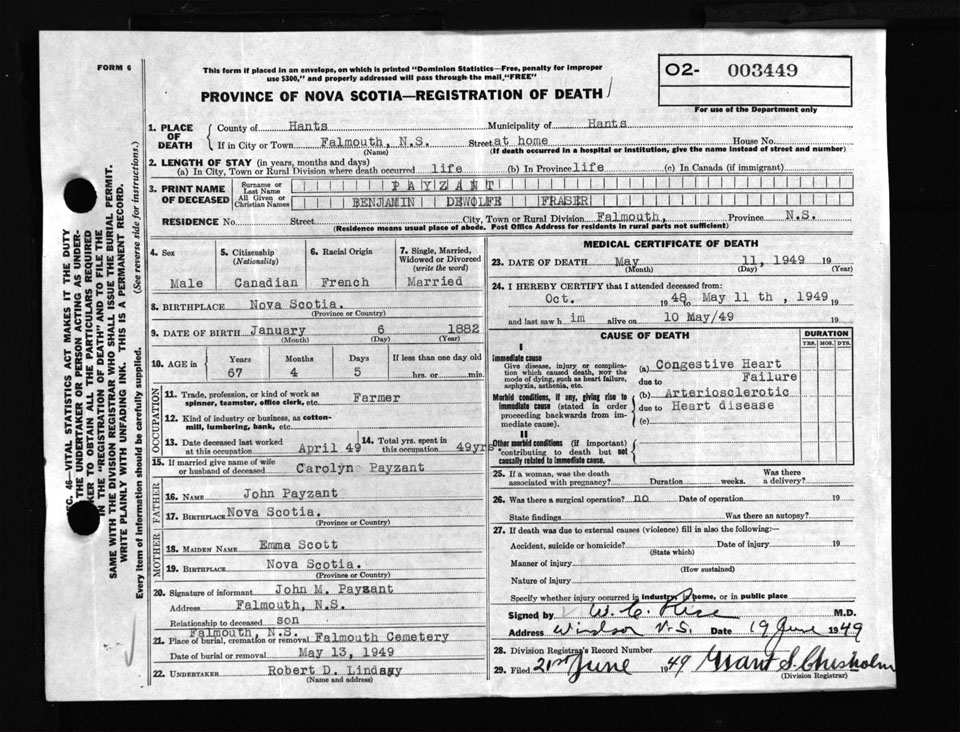 FORM 6
This form if placed in an envelope, on which is printed "Dominion Statistics—Free, penalty for improper
use $300," and properly addressed will pass through the mail "FREE"
PROVINCE OF NOVA SCOTIA—REGISTRATION OF DEATH
O2- 003449
For use of the Department only
1. PLACE OF DEATH
County of Hants Municipality of Hants
If in City or Town Falmouth, N.S. Street at home House No.
(Name) (If death occurred in a hospital or institution, give the name instead of street and number)
2. LENGTH OF STAY (in years, months and days)
(a) In City, Town or Rural Division where death occurred life (b) In Province life (c) In Canada (if immigrant)
3. PRINT NAME OF DECEASED
Surname or Last Name PAYZANT
All Given or Christian Names BENJAMIN DEWOLFE FRASER
RESIDENCE No. Street City, Town or Rural Division Falmouth, Province N.S.
(Residence means usual place of abode. Post Office Address for residents in rural parts not sufficient)
4. Sex
Male
5. Citizenship
(Nationality)
Canadian
6. Racial Origin
French
7. Single, Married,
Widowed or Divorced
(write the word)
Married
8. BIRTHPLACE Nova Scotia.
(Province or Country)
9. DATE OF BIRTH January 6 1882
(Month) (Day) (Year)
10. AGE in Years Months Days If less than one day old
67 4 5 hrs. or min.
OCCUPATION
11. Trade, profession, or kind of work as
spinner, teamster, office clerk, etc. Farmer
12. Kind of industry or business, as cotton-
mill, lumbering, bank, etc.
13. Date deceased last worked
at this occupation April 49
14. Total yrs. spent in
this occupation 49yrs.
15. If married give name of wife
or husband of deceased Carolyn Payzant
FATHER
16. NAME John Payzant
17. BIRTHPLACE Nova Scotia.
(Province or Country)
MOTHER
18. MAIDEN NAME Emma Scott
19. BIRTHPLACE Nova Scotia.
(Province or Country)
20. Signature of informant John M. Payzant
Address Falmouth, N.S.
Relationship to deceased son
Falmouth, N.S.
21. Place of burial, cremation or removal Falmouth Cemetery
Date of burial or removal May 13, 1949
22. UNDERTAKER Robert D. Lindsay
(Name and address)
MEDICAL CERTIFICATE OF DEATH
23. DATE OF DEATH May 11, 1949 19
(Month) (Day) (Year)
24. I HEREBY CERTIFY that I attended deceased from:
Oct. 19 48 May 11 th , 1949 19
and last saw h im alive on 10 May/49 19
CAUSE OF DEATH
DURATION
YRS. MOS. DYS.
I
Immediate cause
Give disease, injury or complica-
tion which caused death, NOT the
mode of dying, such as heart failure,
asphyxia, asthenia, etc.
(a) Congestive Heart
due to Failure
Morbid conditions, if any, giving rise to
immediate cause (stated in order
proceeding backwards from im-
mediate cause).
(b) Arteriosclerotic
due to Heart disease
(c)
II
Other morbid conditions (if important)
contributing to death but not
causally related to immediate cause.
25. If a woman, was the death
associated with pregnancy? Duration weeks. Was there
a delivery?
26. Was there a surgical operation? no Date of operation 19
State findings Was there an autopsy?
27. If death was due to external causes (violence) fill in also the following:—
Accident, suicide or homicide? Date of injury 19
(State which)
Manner of injury
(How sustained)
Nature of injury
Specify whether injury occurred in industry, in home, or in public place
Signed by M.D.
Address Windsor N.S. Date 19 June 1949
28. Division Registrar's Record Number
29. Filed 21st June 1949 Grant S. Chisholm
(Division Registrar)
SEC. 46—VITAL STATISTICS ACT MAKES IT THE DUTY
THE UNDERTAKER OR PERSON ACTING AS UNDER-
KER TO OBTAIN ALL THE PARTICULARS REQUIRED
IN THE "REGISTRATION OF DEATH" AND TO FILE THE
SAME WITH THE DIVISION REGISTRAR WHO SHALL ISSUE THE BURIAL PERMIT.
WRITE PLAINLY WITH UNFADING INK. THIS IS A PERMANENT RECORD.
Every item of information should be carefully supplied. (See reverse side for instructions.)